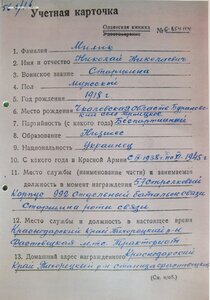 Учетная карточка
Орденская книжка
Удостоверение
№ Е
1. Фамилия Милик
2. Имя и отчество Николай Николаевич
3. Воинское звание Старшина
4. Пол мужской
5. Год рождения 1918 г.
6. Место рождения Чкаловская область
7. Партийность (с какого года) Беспартийный
8. Образование Низшее
9. Национальность Украинец
10. С какого года в Красной Армии
11. Место службы (наименование части) и занимаемая
должность в момент награждения 5 Стрелковый
Корпус 992 Отдельный Батальон связи
Старшина роты связи
12. Место службы и должность в настоящее время
Краснодарский Край Тихорецкий р-н
Тракторист
13. Домашний адрес награжденного Краснодарский
Край Тихорецкий р-н станица
(См. н/об.)